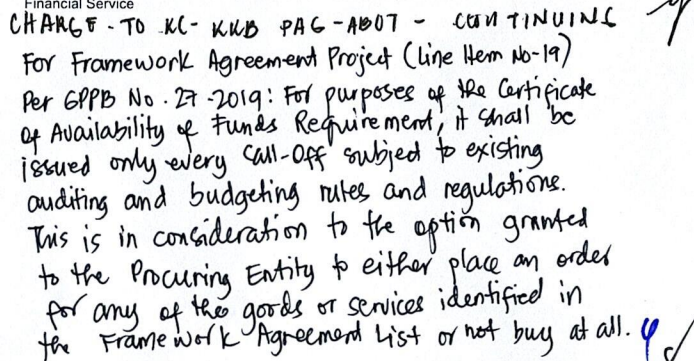 Financial Service
CHARGE - TO KC - KKB PAG - ABOT - CONTINUING
For Framework Agreement Project (Line Item No-19)
Per GPPB No. 27-2019: For purposes of the Certificate
of Availability of Funds Requirement, it shall be
issued only every Call-Off subject to existing
auditing and budgeting rules and regulations.
This is in consideration to the option granted
to the Procuring Entity to either place an order
for any of the goods or services identified in
the Framework Agreement List or not buy at all.